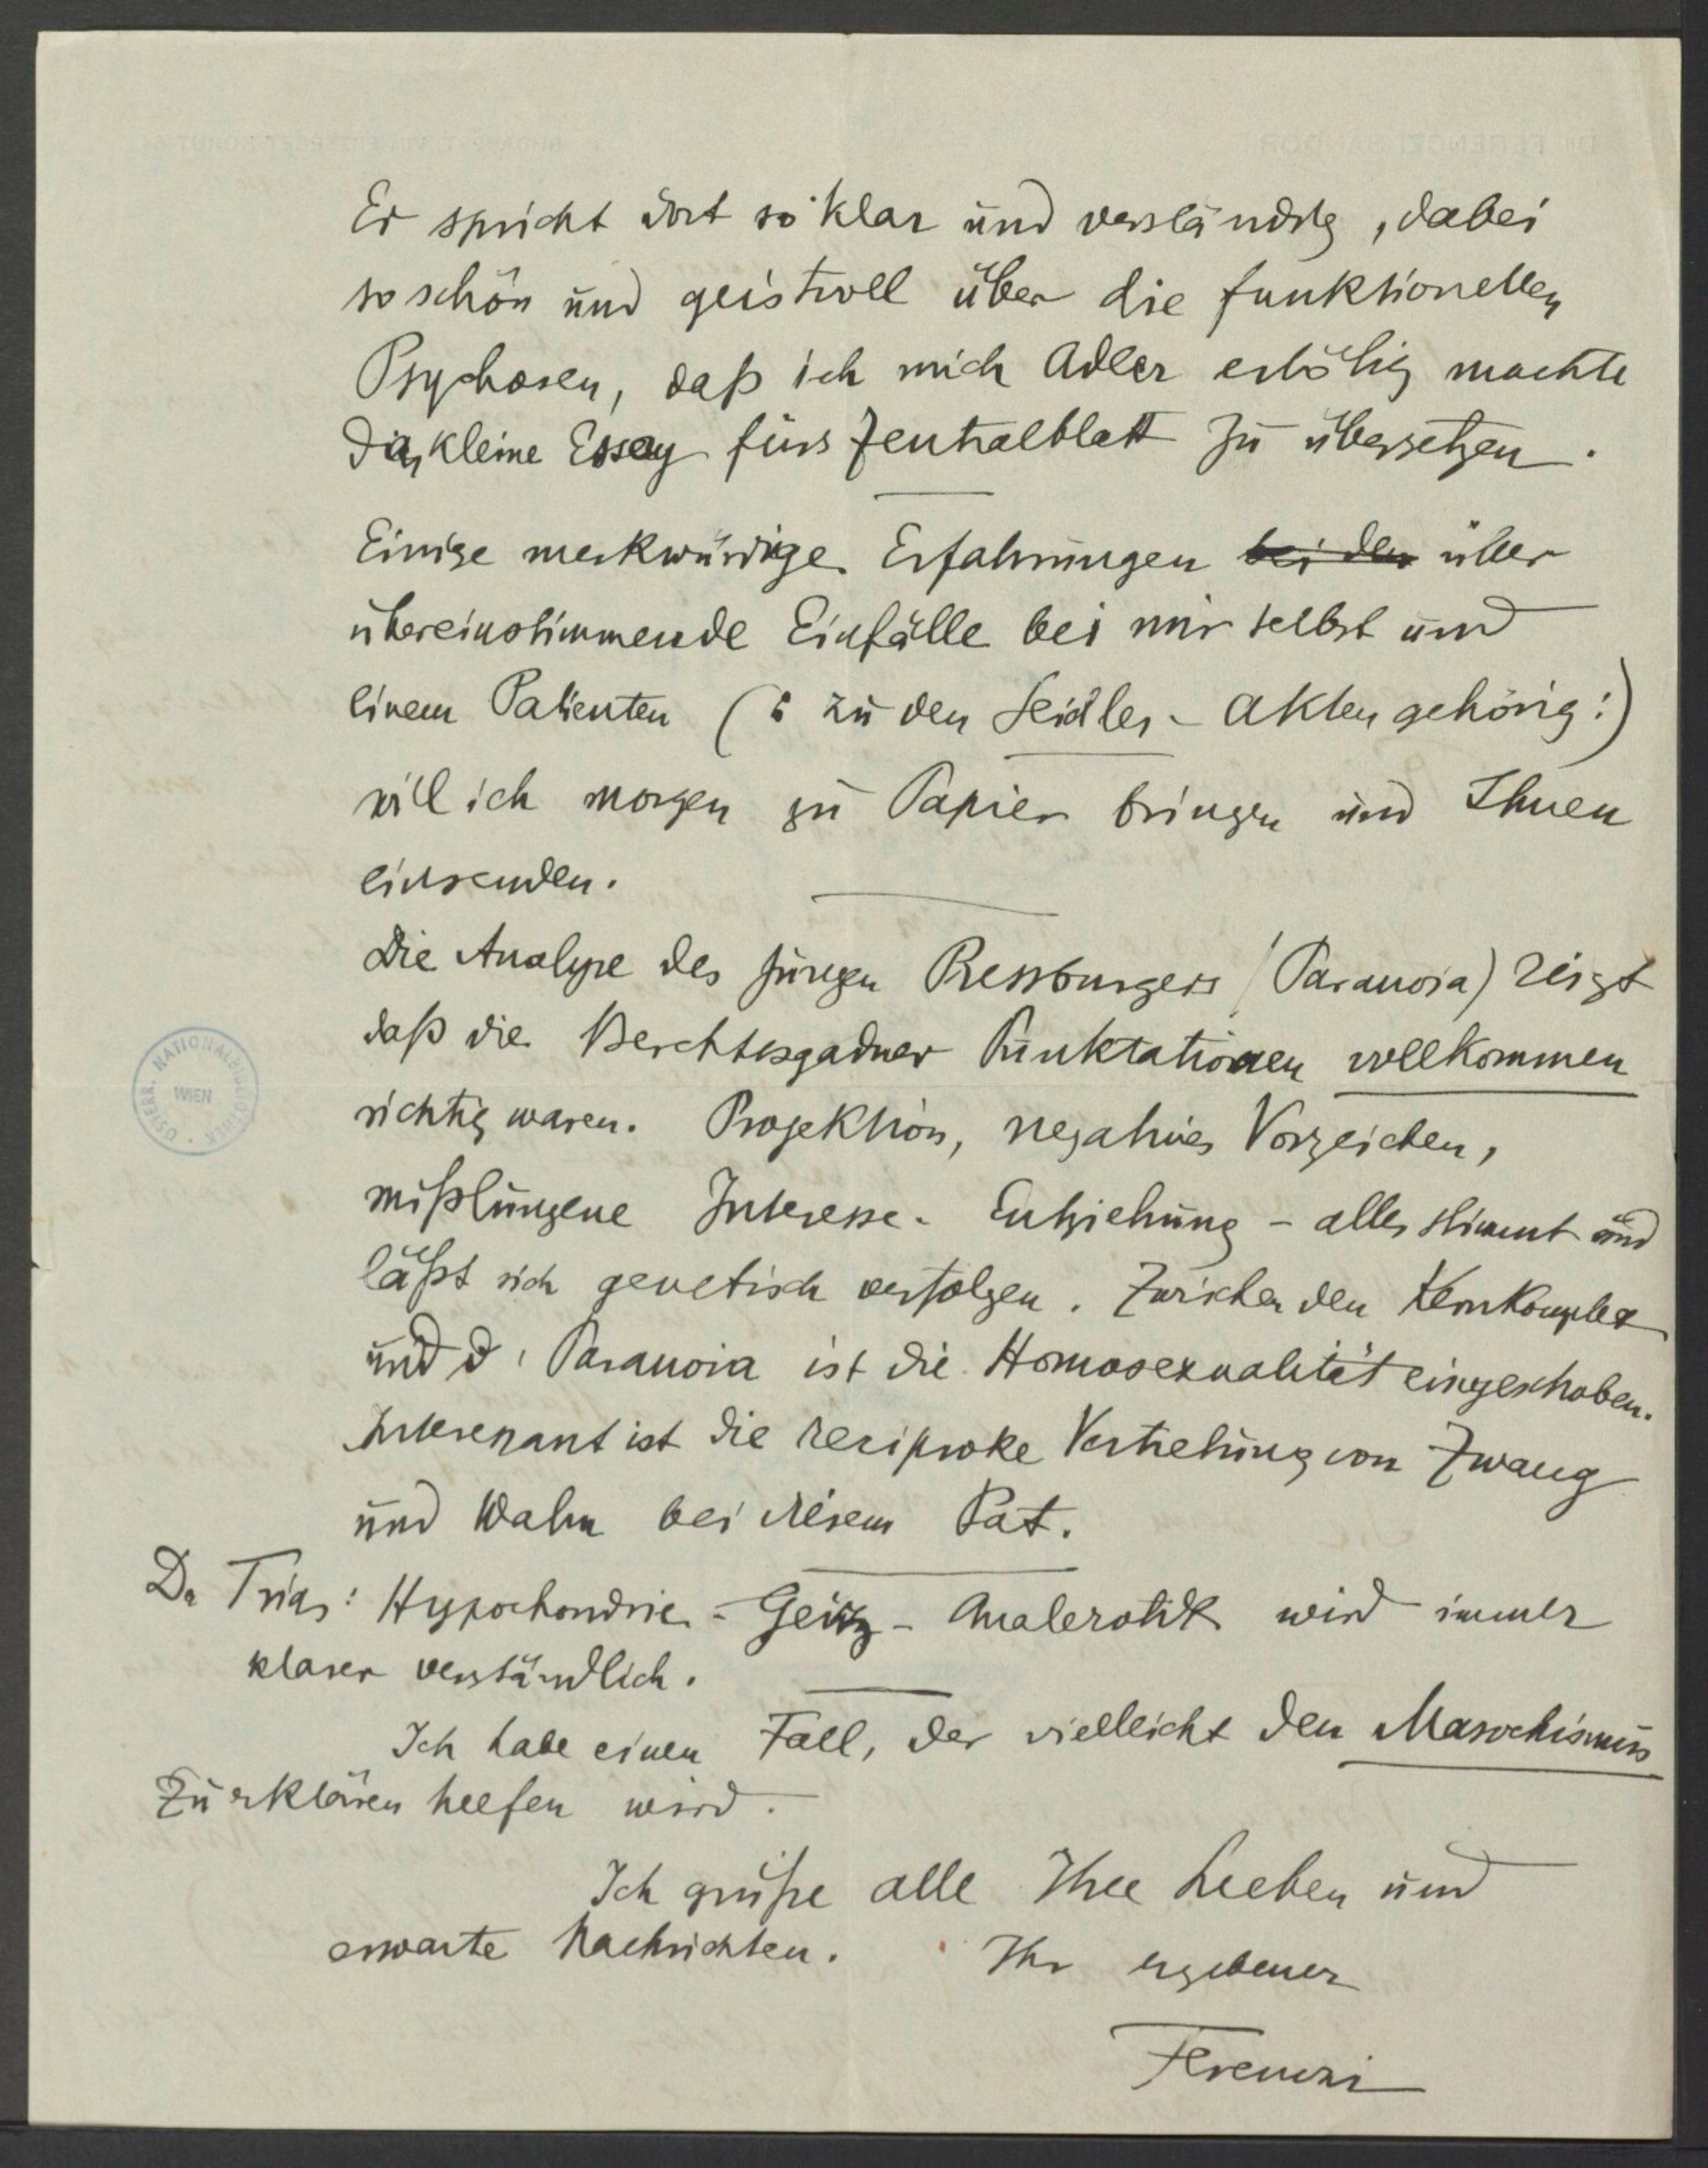 Er spricht dort so klar und verständig, dabei
so schön und geistvoll über die funktionellen
Psychosen, daß ich mich Adler erbötig machte
das kleine Essay fürs Zentralblatt zu übersetzen.
Einige merkwürdige Erfahrungen bei den über
übereinstimmende Einfälle bei mir selbst und
einem Patienten (: zu den Seidler-Akten gehörig :)
will ich morgen zu Papier bringen und Ihnen
einsenden.
Die Analyse des jungen Pressburgers (Paranoia) zeigt
daß die Berchtesgadner Punktationen vollkommen
richtig waren. Projektion, negatives Vorzeichen,
mißlungene Interesse-Entziehung - alles stimmt und
läßt sich genetisch verfolgen. Zwischen den Kernkomplex
und d. Paranoia ist die Homosexualität eingeschoben.
Interessant ist die reziproke Vertretung von Zwang
und Wahn bei diesem Pat.
Trias: Hypochondrie - Geiz - Analerotik wird immer
klarer verständlich.
Ich habe einen Fall, der vielleicht den Masochismus
zu erklären helfen wird.
Ich grüße alle Ihre Lieben und
erwarte Nachrichten. Ihr ergebener
Ferenczi
ÖSTERR. NATIONALBIBLIOTHEK
WIEN